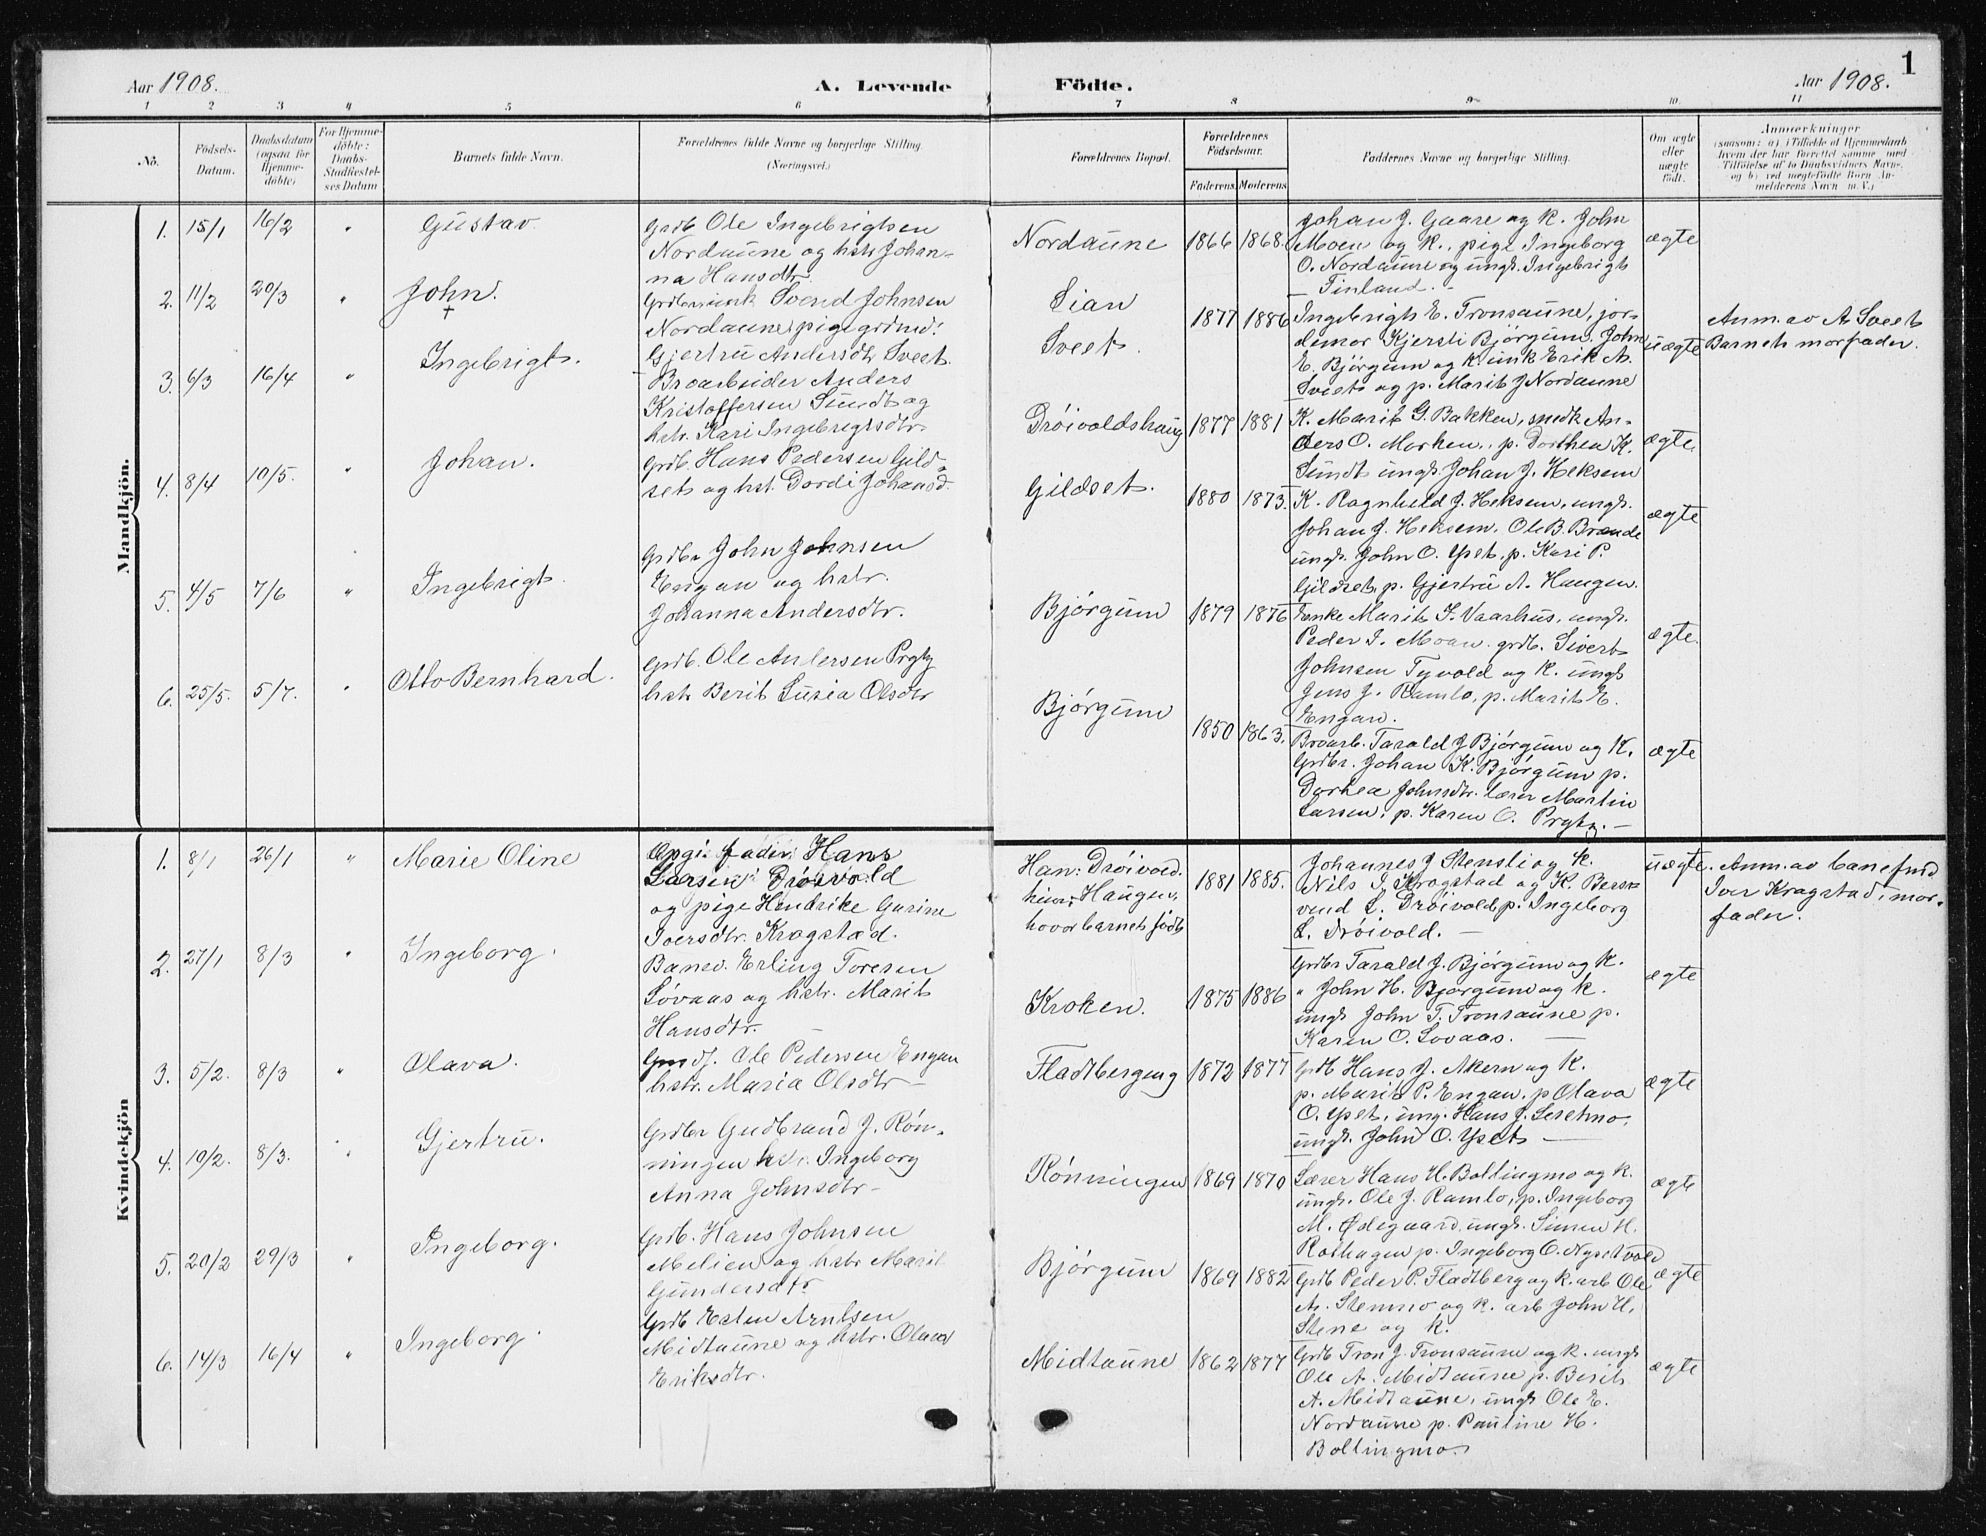 1
Aar 1908.
A. Levende
Födte.
Aar 1908.
1 2 3 4 5 6 7 8 9 10. 11
No.
Födsels-
Datum.
Daabsdatum
(ogsaa for
Hjemme-
döbte)
For Hjemme-
döbte:
Daabs-
Stadfæstel-
ses Datum
Barnets fulde Navn.
Forældrenes fulde Navne og borgerlige Stilling.
(Næringsvei.)
Forældrenes Bopæl.
Forældrenes
Födselsaar.
Faderens. Moderens.
Faddernes Navne og borgerlige Stilling.
Om ægte
eller
uægte
födt.
Anmærkninger
(saasom: a) i Tilfælde af Hjemmedaab
hvem der har forrettet samme med
Tilföielse af to Daabsvidners Navne,
og b) ved uægtefödte Börn An-
melderens Navn m. V.)
Mandkjön.
1. 15/1 16/2 " Gustav.
Grdb. Ole Ingebrigtsen
Nordaune og hstr. Johan-
na Hansdtr.
Nordaune 1866 1868.
Johan J. Gaare og k. John
Moen og k., pige Ingeborg
O. Nordaune og ungk. Ingebrigt
Finland.
ægte
2. 11/2 20/3 " John.
+
Grdbr. unk Svend Johnsen
Nordaune, pige grdmd:
Gjertru Andersdtr Sveet
Sian
Sveet.
1877 1886
Ingebrigt E. Tronsaune, jor-
demor Kjersti Bjørgum, John
E. Bjørgum og k. unk Erik A.
Sveet og p. Marit J Nordaune
uægte
Anm. av A Sveet
Barnets morfader.
3. 6/3 16/4 " Ingebrigt.
Broarbeider Anders
Kristoffersen Sundt og
hstr. Kari Ingebrigtsdtr.
Drøivoldshaug 1877 1881
K. Marit G. Bakken, smedk An-
ders O. Morken, p. Dorthea K.
Sundt ungk. Johan J. Heksem
ægte
4. 8/4 10/5. " Johan.
Grdb. Hans Pedersen Gild-
set og hst. Dordi Johansd.
Gildset. 1880 1873.
K. Ragnhild J. Heksem, ungk.
Johan J. Heksem. Ole B. Brende
ungk. John O. Yset, p. Kari P.
Gildset, p. Gjertru A. Haugen.
ægte
5. 4/5 7/6 " Ingebrigt.
Grdb. John Johnsen
Engan og hstr.
Johanna Andersdtr.
Bjørgum 1879 1876
Enke Marit I. Vaarhus, ungk.
Peder I. Moan. grdb. Sivert
Johnsen Tyvold og k. ungk
Jens J. Ramlo, p. Marit E.
Engan.
ægte.
6. 25/5. 5/7. " Otto Bernhard.
Grdb. Ole Andersen Prgty
hstr Berit Lusia Olsdtr
Bjørgum 1850 1863.
Broarb. Tarald J Bjørgum og k.
Grdbr. Johan K. Bjørgum p.
Dorthea Johnsdtr. lærer Martin
Larsen, p. Karen O. Prgty.
ægte
Kvindekjön
1. 8/1 26/1 " Marie Oline
Opgi. fader: Hans
Larsen Drøivold
og pige Hendrike Gurine
Iversdtr. Kragstad.
Han: Drøivold.
hun: Haugen,
hvor barnet født
1881 1885.
Johannes J Stensli og k.
Nils I. Kragstad og k. Bers-
vend L. Drøivold, p. Ingeborg
L. Drøivold.
uægte.
Anm. av banefmd
Iver Kragstad, mor-
fader.
2. 27/1 8/3 " Ingeborg.
Banev. Erling Toresen
Løvaas og hstr. Marit
Hansdtr.
Kroken. 1875 1886
Grdbr Tarald J. Bjørgum og k.
" John H. Bjørgum og k.
ungk John T. Tronsaune p.
Karen O. Lovaas.
ægte
3. 5/2. 8/3 " Olava.
Ole Pedersen Engan
hstr. Maria Olsdtr
Fladtbergeng 1872 1877
Grdb Hans J. Akern og k.
p. Marit P. Engan, p Olava
O. Yset, ung. Hans J. Seretmo,
ungk. John O. Yset
ægte
4. 19/2. 8/3. " Gjertru.
Grdbr Gudbrand J. Røn-
ningen hstr. Ingeborg
Anna Johnsdtr
Rønningen 1869 1870
Lærer Hans H. Bollingmo og k.
ungk. Ole J. Ramlo, p. Ingeborg
M. Ødegaard, ungk. Simen H.
Rothagen p. Ingeborg O. Nysetvold
ægte
5. 20/2 29/3 " Ingeborg.
Grdb. Hans Johnsen
Melien og hstr Marit
Gundersdtr
Bjørgum 1869 1882
Grdb Peder P. Fladtberg og k. arb Ole
A. Stenmo og k. arb John H.
Stene og k.
ægte
6. 14/3 16/4 " Ingeborg.
Grdb Esten Arntsen
Midtaune og hstr. Olava
Eriksdtr.
Midtaune 1862 1877
Grdb Tron J. Tronsaune og k. ungk
Ole A. Midtaune p. Berit
A. Midtaune, ungk Ole E.
Nordaune p. Pauline H.
Bollingmo.
ægte